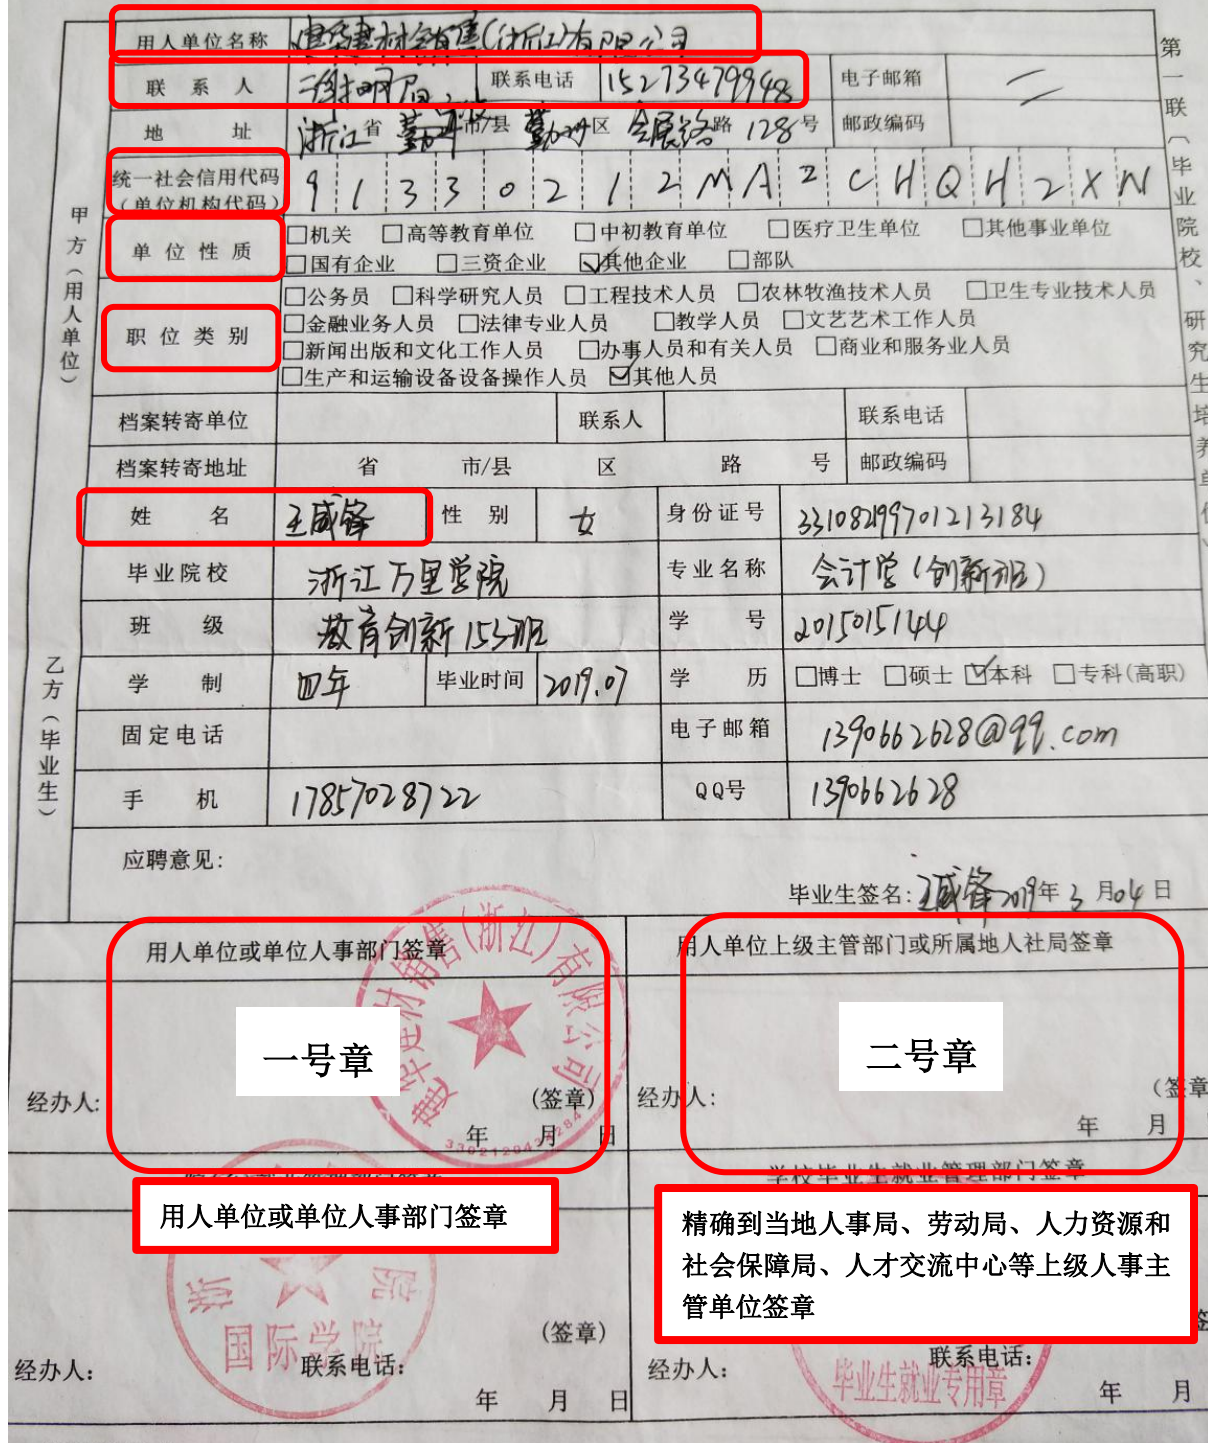 用人单位名称 建华建材销售(浙江)有限公司
联系人 联系电话 15273479948 电子邮箱
地址 浙江省 市/县 鄞州区 会展路 128号 邮政编码
统一社会信用代码 91330212MA2CHQH2XN
(单位机构代码)
单位性质 □机关 □高等教育单位 □中初教育单位 □医疗卫生单位 □其他事业单位
□国有企业 □三资企业 ☑其他企业 □部队
职位类别 □公务员 □科学研究人员 □工程技术人员 □农林牧渔技术人员 □卫生专业技术人员
□金融业务人员 □法律专业人员 □教学人员 □文艺艺术工作人员
□新闻出版和文化工作人员 □办事人员和有关人员 □商业和服务业人员
□生产和运输设备设备操作人员 ☑其他人员
档案转寄单位 联系人 联系电话
档案转寄地址 省 市/县 区 路 号 邮政编码
甲方(用人单位)
姓名 王威锋 性别 女 身份证号 331082199701213184
毕业院校 浙江万里学院 专业名称 会计学(创新班)
班级 教育创新153班 学号 2015015144
学制 四年 毕业时间 2019.07 学历 □博士 □硕士 ☑本科 □专科(高职)
固定电话 电子邮箱 1390662628@qq.com
手机 17857028722 QQ号 1390662628
乙方(毕业生)
应聘意见:
毕业生签名: 王威锋 2019年3月04日
第一联(毕业院校、研究生培养单位
用人单位或单位人事部门签章 用人单位上级主管部门或所属地人社局签章
建华建材销售(浙江)有限公司
一号章 二号章
经办人: (签章) 经办人: (签章
年 月 日 年 月
学校毕业生就业管理部门签章
用人单位或单位人事部门签章
精确到当地人事局、劳动局、人力资源和
社会保障局、人才交流中心等上级人事主
管单位签章
浙 院
国际学院
(签章)
经办人: 联系电话: 经办人: 联系电话:
毕业生就业专用章
年 月 日 年 月